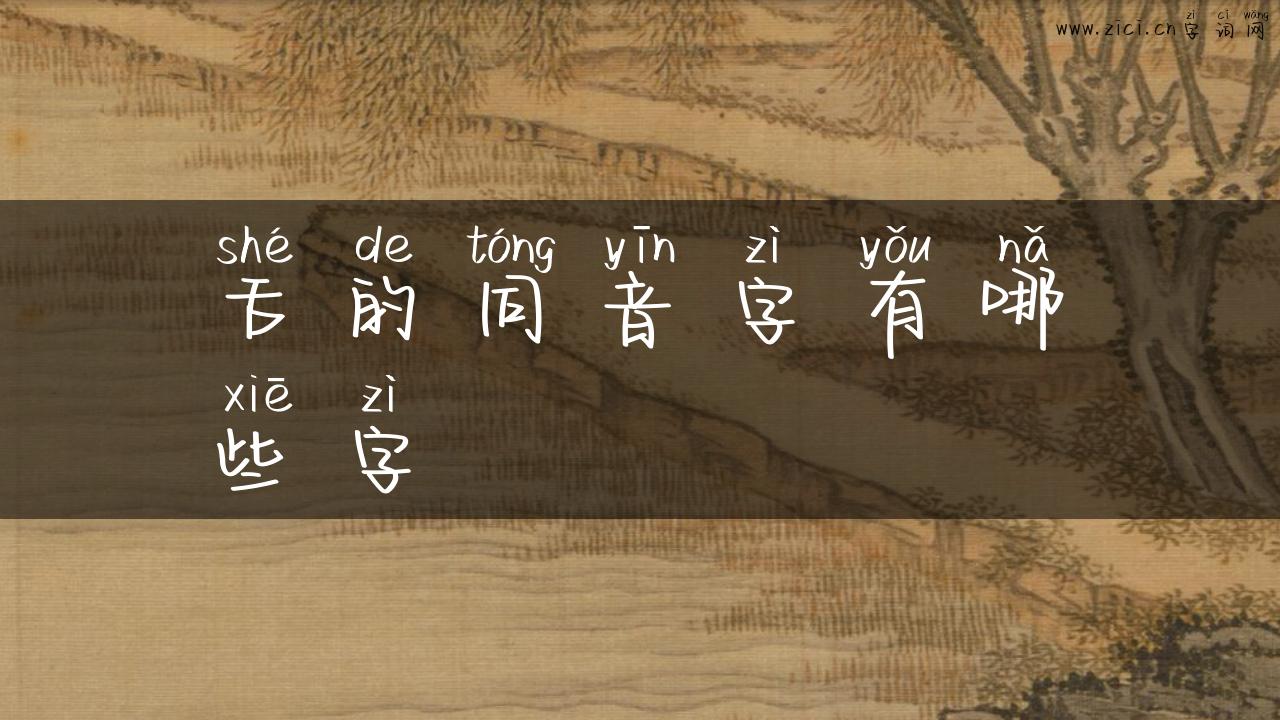 zì cí wǎng
www.zici.cn字词网
shé de tóng yīn zì yǒu nǎ
舌的同音字有哪
xiē zì
些字